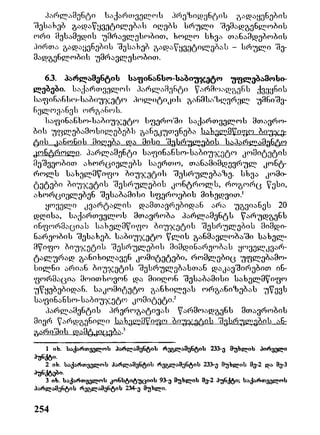 პარლამენტი საქართველოს პრეზიდენტის გადაყენების
შესახებ გადაწყვეტილებას იღებს სრული შემადგენლობის
ორი მესამედის უმრავლესობით, ხოლო სხვა თანამდებობის
პირთა გადაყენების შესახებ გადაწყვეტილებას – სრული შე-
მადგენლობის უმრავლესობით.
6.3. პარლამენტის საფინანსო-საბიუჯეტო უფლებამოსი-
ლებები. საქართველოს პარლამენტი წარმოადგენს ქვეყნის
საფინანსო-საბიუჯეტო პოლიტიკის განმსაზღვრელ უმნიშვ-
ნელოვანეს ორგანოს.
საფინანსო-საბიუჯეტო სფეროში საქართველოს მთავრო-
ბის უფლებამოსილებებს განეკუთვნება სახელმწიფო ბიუჯე-
ტის კანონის მიღება და მისი შესრულების საპარლამენტო
კონტროლი. პარლამენტი საფინანსო-საბიუჯეტო კომიტეტის
მეშვეობით ახორციელებს საერთო, თანამიმდევრულ კონტ-
როლს სახელმწიფო ბიუჯეტის შესრულებაზე. სხვა კომი-
ტეტები ბიუჯეტის შესრულების კონტროლს, როგორც წესი,
ახორციელებენ შესაბამისი სფეროების მიხედვით.¹
ყოველი კვარტალის დამთავრებიდან არა უგვიანეს 20
დღისა, საქართველოს მთავრობა პარლამენტს წარუდგენს
ინფორმაციას სახელმწიფო ბიუჯეტის შესრულების მიმდი-
ნარეობის შესახებ. საბიუჯეტო წლის განმავლობაში სახელ-
მწიფო ბიუჯეტის შესრულების მიმდინარეობას ყოველკვარ-
ტალურად განიხილავენ კომიტეტები, რომლებიც უფლებამო-
სილნი არიან ბიუჯეტის შესრულებასთან დაკავშირებით ინ-
ფორმაცია მოითხოვონ და მიიღონ შესაბამისი სახელმწიფო
უწყებებიდან. საკომიტეტო განხილვას ორგანიზებას უწევს
საფინანსო-საბიუჯეტო კომიტეტი.²
პარლამენტის პრეროგატივას წარმოადგენს მთავრობის
მიერ წარდგენილი სახელმწიფო ბიუჯეტის შესრულების ან-
გარიშის დამტკიცება.³
1 იხ. საქართველოს პარლამენტის რეგლამენტის 233-ე მუხლის პირველი
პუნქტი.
2 იხ. საქართველოს პარლამენტის რეგლამენტის 233-ე მუხლის მე-2 და მე-3
პუნქტები.
3 იხ. საქართველოს კონსტიტუციის 93-ე მუხლის მე-2 პუნქტი; საქართველოს
პარლამენტის რეგლამენტის 234-ე მუხლი.
254